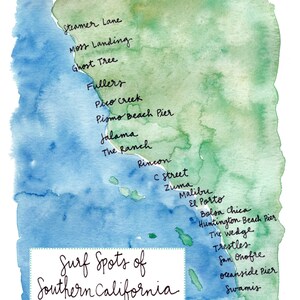 Steamer Lane
Moss Landing
Ghost Tree
Fullers
Pico Creek
Pismo Beach Pier
Jalama
The Ranch
Rincon
C Street
Zuma
Malibu
El Porto
Bolsa Chica
Huntington Beach Pier
The Wedge
Trestles
San Onofre
Oceanside Pier
Swamis
Surf Spots of
Southern California